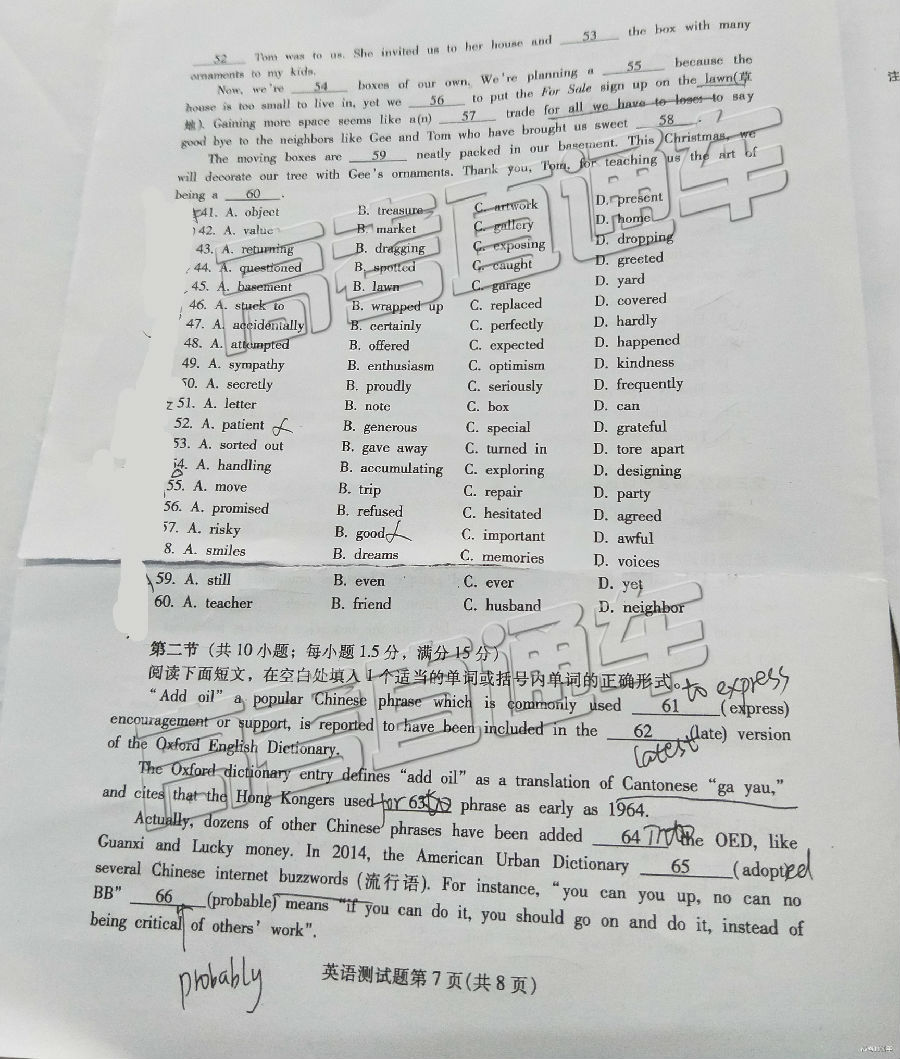 52 Tom was to us. She invited us to her house and 53 the box with many
ornaments to my kids.
Now, we're 54 boxes of our own. We're planning a 55 because the
house is too small to live in, yet we 56 to put the For Sale sign up on the lawn(草
地). Gaining more space seems like a(n) 57 trade for all we have to lose: to say
good bye to the neighbors like Gee and Tom who have brought us sweet 58 . ?
The moving boxes are 59 neatly packed in our basement. This Christmas, we
will decorate our tree with Gee's ornaments. Thank you, Tom, for teaching us the art of
being a 60 .
41. A. object B. treasure C. artwork D. present
42. A. value B. market C. gallery D. home
43. A. returning B. dragging C. exposing D. dropping
44. A. questioned B. spotted C. caught D. greeted
45. A. basement B. lawn C. garage D. yard
46. A. stuck to B. wrapped up C. replaced D. covered
47. A. accidentally B. certainly C. perfectly D. hardly
48. A. attempted B. offered C. expected D. happened
49. A. sympathy B. enthusiasm C. optimism D. kindness
50. A. secretly B. proudly C. seriously D. frequently
51. A. letter B. note C. box D. can
52. A. patient B. generous C. special D. grateful
53. A. sorted out B. gave away C. turned in D. tore apart
54. A. handling B. accumulating C. exploring D. designing
55. A. move B. trip C. repair D. party
56. A. promised B. refused C. hesitated D. agreed
57. A. risky B. good C. important D. awful
8. A. smiles B. dreams C. memories D. voices
59. A. still B. even C. ever D. yet
60. A. teacher B. friend C. husband D. neighbor
第二节 (共 10 小题; 每小题 1.5 分, 满分 15 分)
阅读下面短文, 在空白处填入 1 个适当的单词或括号内单词的正确形式。 to express
"Add oil" a popular Chinese phrase which is commonly used 61 (express)
encouragement or support, is reported to have been included in the 62 (late) version
latest
of the Oxford English Dictionary.
The Oxford dictionary entry defines "add oil" as a translation of Cantonese "ga yau,"
and cites that the Hong Kongers used for 63 to phrase as early as 1964.
Actually, dozens of other Chinese phrases have been added 64 into the OED, like
Guanxi and Lucky money. In 2014, the American Urban Dictionary 65 (adopt) ed
several Chinese internet buzzwords (流行语). For instance, "you can you up, no can no
BB" 66 (probable) means "if you can do it, you should go on and do it, instead of
being critical of others' work".
probably
英语测试题第 7 页(共 8 页)
注
高考直通车
高考直通车